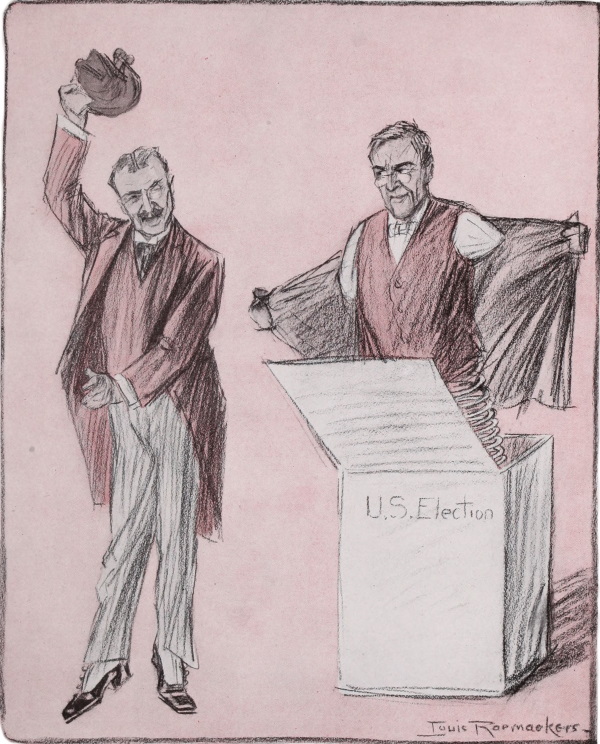 U.S. Election
Louis Raemaekers